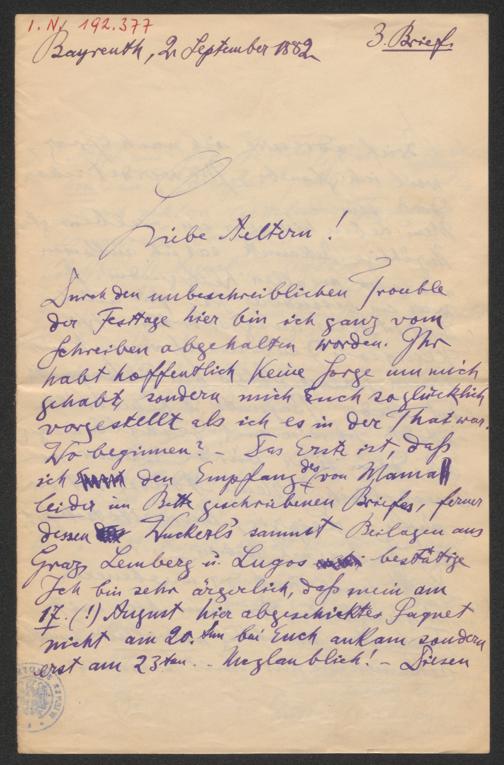 I. N. 192.377
Bayreuth, 2. September 1882
3. Brief.
Liebe Aeltern!
Durch den unbeschreiblichen Trouble
der Festtage hier bin ich ganz vom
Schreiben abgehalten worden. Ihr
habt hoffentlich keine Sorge um mich
gehabt, sondern mich Euch so glücklich
vorgestellt als ich es in der That war.
Wo beginnen? – Das Erste ist, daß
ich den Empfang des von Mama
leider im Bette geschriebenen Briefes, ferner
dessen Wuckerl's sammt Beilagen aus
Graz, Lemberg u. Lugos bestätige
Ich bin sehr ärgerlich, daß mein am
17. (!) August hier abgeschicktes Paquet
nicht am 20. ten bei Euch ankam sondern
erst am 23 ten. – Unglaublich! – Diesen